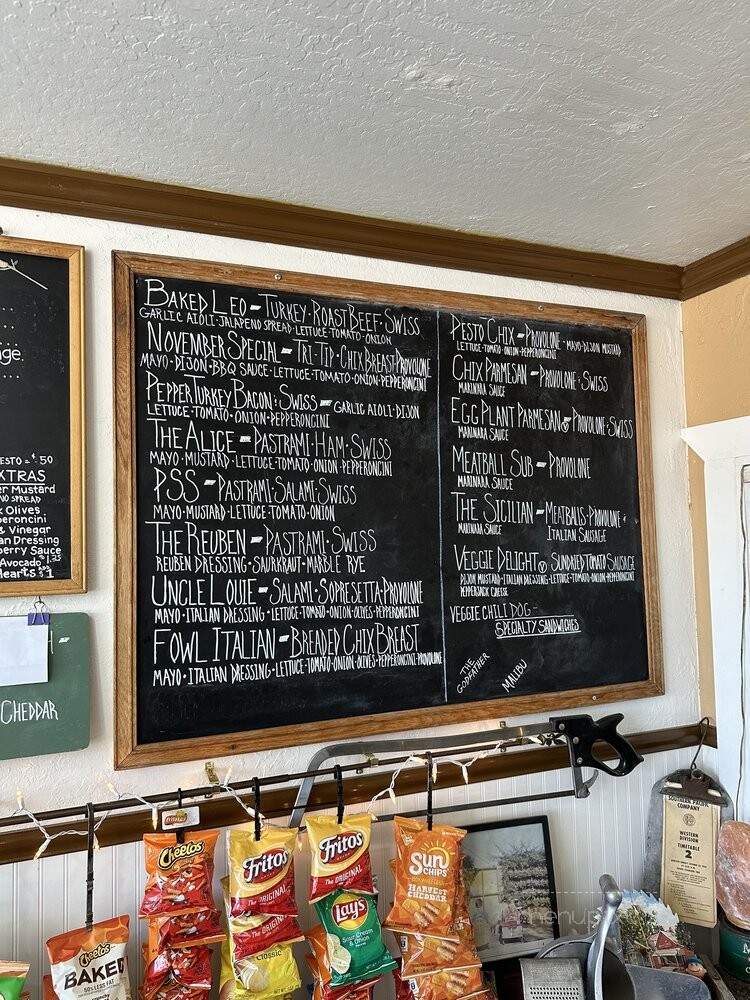 nge
ESTO = $.50
XTRAS
er Mustard
NO SPREAD
k Olives
peroncini
& Vinegar
an Dressing
berry Sauce
Avocado $1.25
Hearts $1
CHEDDAR
BAKED LEO - TURKEY·ROAST BEEF·SWISS
GARLIC AIOLI·JALAPENO SPREAD·LETTUCE·TOMATO·ONION
NOVEMBER SPECIAL - TRI-TIP·CHIX BREAST·PROVOLONE
MAYO·DIJON·BBQ SAUCE·LETTUCE·TOMATO·ONION·PEPPERONCINI
PEPPER TURKEY BACON & SWISS - GARLIC AIOLI·DIJON
LETTUCE·TOMATO·ONION·PEPPERONCINI
THE ALICE - PASTRAMI·HAM·SWISS
MAYO·MUSTARD·LETTUCE·TOMATO·ONION·PEPPERONCINI
PSS - PASTRAMI·SALAMI·SWISS
MAYO·MUSTARD·LETTUCE·TOMATO·ONION
THE REUBEN - PASTRAMI·SWISS
REUBEN DRESSING·SAURKRAUT·MARBLE RYE
UNCLE LOUIE - SALAMI·SOPRESETTA·PROVOLONE
MAYO·ITALIAN DRESSING·LETTUCE·TOMATO·ONION·OLIVES·PEPPERONCINI
FOWL ITALIAN - BREADED CHIX BREAST
MAYO·ITALIAN DRESSING·LETTUCE·TOMATO·ONION·OLIVES·PEPPERONCINI·PROVOLONE
PESTO CHIX - PROVOLONE - MAYO·DIJON MUSTARD
LETTUCE·TOMATO·ONION·PEPPERONCINI
CHIX PARMESAN - PROVOLONE & SWISS
MARINARA SAUCE
EGG PLANT PARMESAN V - PROVOLONE & SWISS
MARINARA SAUCE
MEATBALL SUB - PROVOLONE
MARINARA SAUCE
THE SICILIAN - MEATBALLS·PROVOLONE &
MARINARA SAUCE ITALIAN SAUSAGE
VEGGIE DELIGHT V SUNDRIED TOMATO SAUSAGE
DIJON MUSTARD·ITALIAN DRESSING·LETTUCE·TOMATO·ONION·PEPPERONCINI
PEPPERJACK CHEESE
VEGGIE CHILI DOG -
SPECIALTY SANDWICHES
THE GODFATHER
MALIBU
Fritos
Cheetos
Fritos
The ORIGINAL
Fritos
The ORIGINAL
Sun
CHIPS
HARVEST
CHEDDAR
Lay's
Sour Cream
& Onion
Classic
Cheetos
BAKED
SOUTHERN PACIFIC
COMPANY
WESTERN
DIVISION
TIMETABLE
2